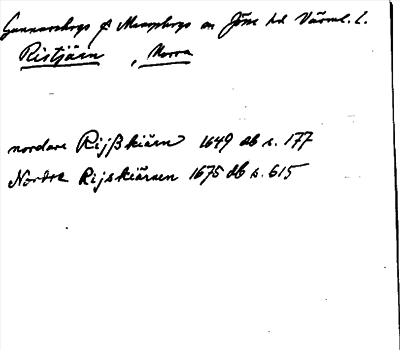 Gunnarskogs sn Jösse hd Värml. l.
Ristjärn , Norra
nordare Rijßkiärn 1649 db s. 177
Nordre Rijskiärnen 1675 db s. 615